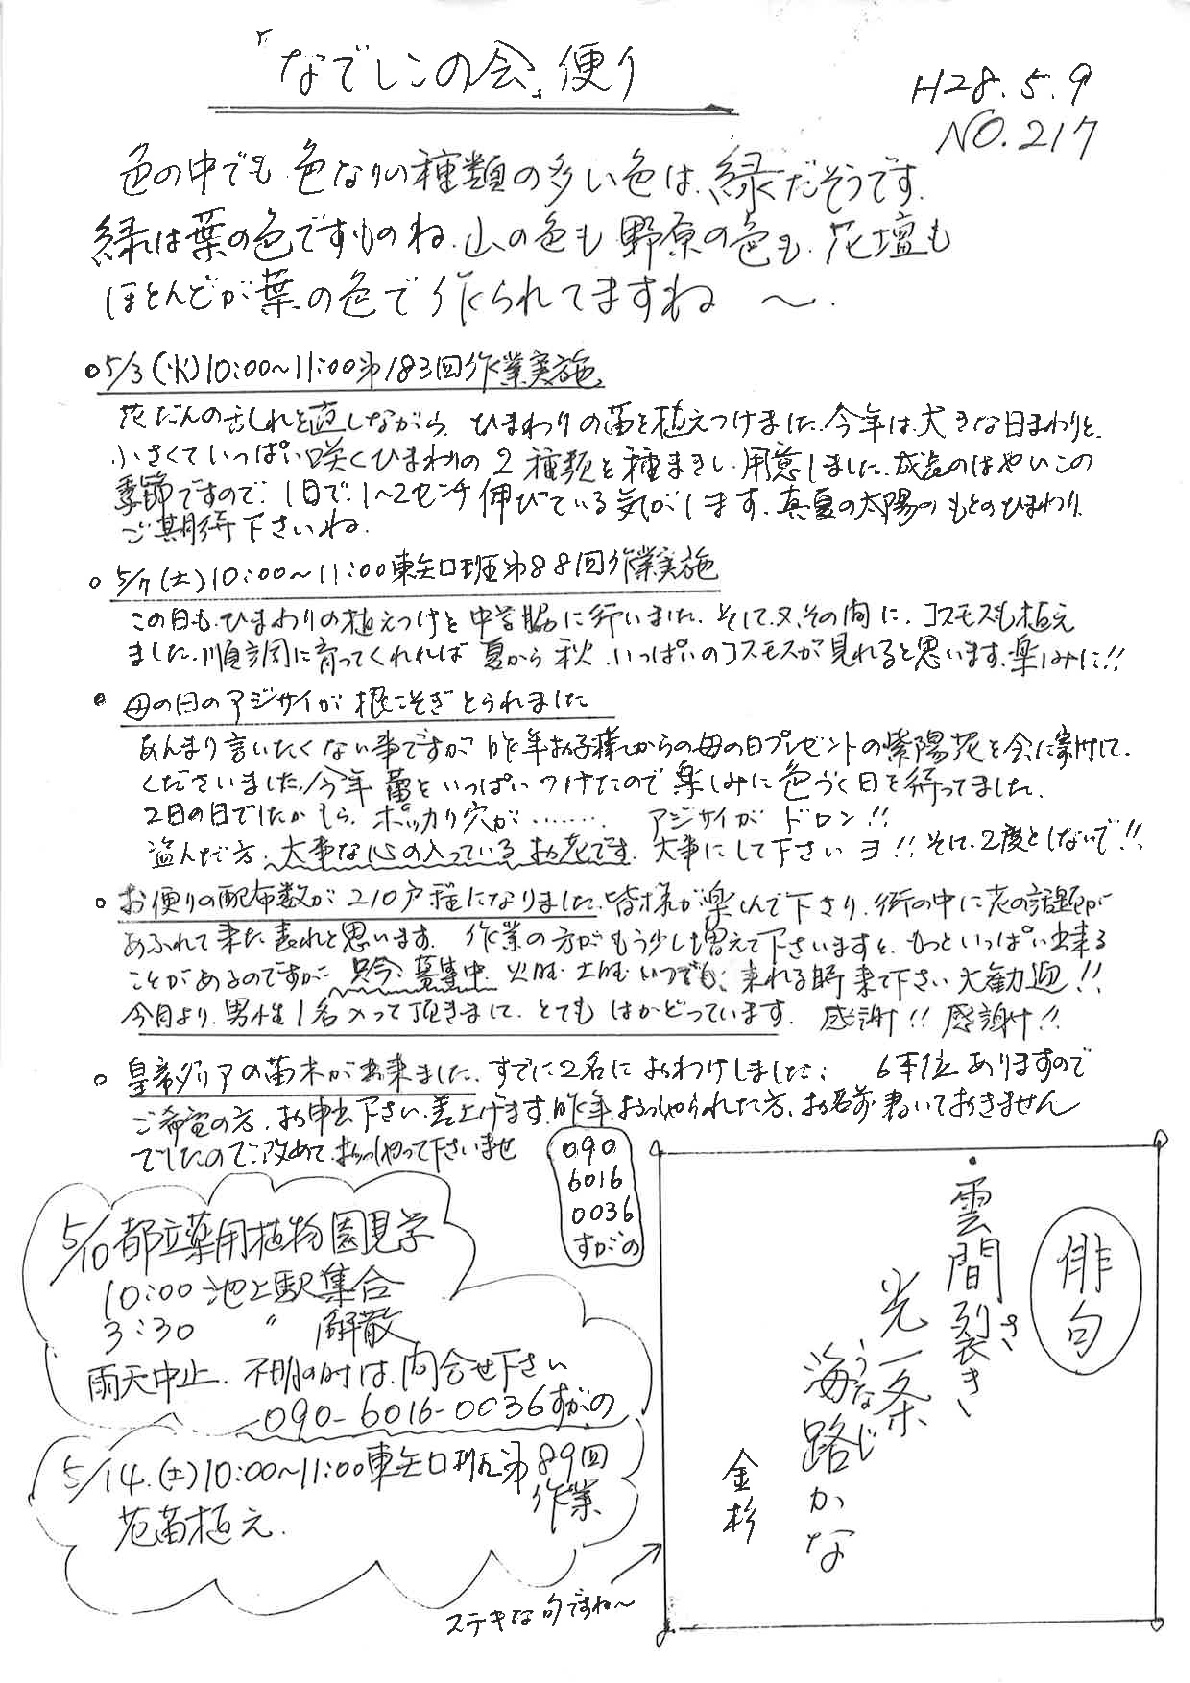 「なでしこの会」便り
H28.5.9
NO.217
色の中でも色なりの種類の多い色は、緑だそうです。
緑は葉の色ですものね。山の色も野原の色も、花壇も
ほとんどが葉の色で作られてますね 〜。
○5/3(火)10:00〜11:00第183回作業実施
花だんの乱れを直しながら、ひまわりの苗を植えつけました。今年は大きな日まわりと、
小さくていっぱい咲くひまわりの2種類を種まきし、用意しました。成長のはやいこの
季節ですので、1日で1〜2センチ伸びている気がします。真夏の太陽のもとのひまわり、
ご期待下さいね。
○5/7(土)10:00〜11:00東矢口班第88回作業実施
この日も、ひまわりの植えつけを中学脇に行いました。そして、又、その間に、コスモスも植え
ました。順調に育ってくれれば夏から秋、いっぱいのコスモスが見れると思います。楽しみに!!
○母の日のアジサイが根こそぎとられました
あんまり言いたくない事ですが、昨年お子様からの母の日プレゼントの紫陽花を会に寄付して、
くださいました。今年蕾をいっぱいつけたので楽しみに色づく日を待ってました。
2日の日でしたかしら、ポッカリ穴が……… アジサイがドロン!!
盗んだ方、大事な心の入っているお花です。大事にして下さいヨ!!そして、2度としないで!!
○お便りの配布数が210戸程になりました。皆様が楽しんで下さり、街の中に花の話題が
あふれて来た表れと思います。作業の方がもう少し増えて下さいますと、もっといっぱい出来る
ことがあるのですが、只今、募集中。火曜・土曜いつでも、来れる時来て下さい大歓迎!!
今月より、男性1名入って頂きまして、とてもはかどっています。感謝!!感謝!!
○皇帝ダリアの苗木が出来ました。すでに2名におわけしました。6本位ありますので
ご希望の方、お申出下さい。差上げます。昨年おっしゃられた方、お名前書いておきません
でしたので、改めて、おっしゃって下さいませ
090
6016
0036
すがの
5/10都立薬用植物園見学
10:00池上駅集合
3:30 〃 解散
雨天中止。不明の時は、問合せ下さい
090-6016-0036すがの
5/14.(土)10:00〜11:00東矢口班第89回
作業
花苗植え.
俳句
・雲間裂き
さ
光一条
海路かな
うなじ
金杉
ステキな句ですね〜